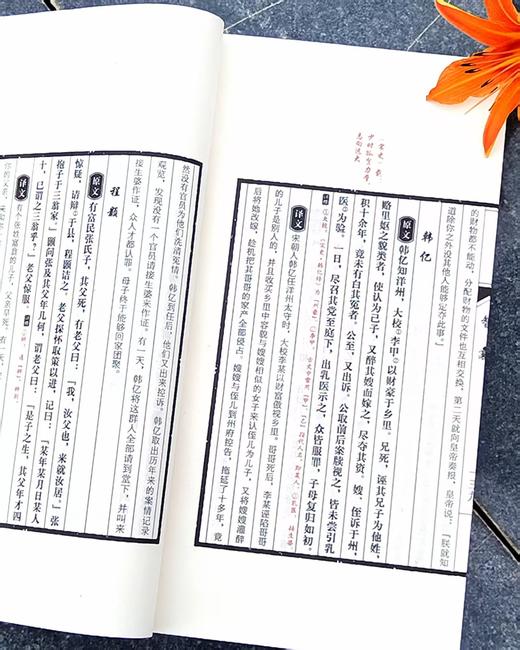 的财物都不能动，分配财物的文件也互相交换，第二天就向皇帝奏报，皇帝说：“朕就知
道除你之外没其他人能够定夺此事。”
韩亿
原文 韩亿知洋州，大校①李甲②以财豪于乡里。兄死，诬其兄子为他姓，
赂里妪之貌类者，使认为己子，又醉其嫂而嫁之，尽夺其资。嫂、侄诉于州，
积十余年，竟未有白其冤者。公至，又出诉。公取前后案牍视之，皆未尝引乳
医③为验。一日，尽召其党至庭下，出乳医示之，众皆服罪，子母复归如初。
译文
宋朝人韩亿任洋州太守时，大校李某以财富傲视乡里。哥哥死后，李某诬陷哥哥
的儿子是别人的，并且收买乡里中容貌与嫂嫂相似的女子来认侄儿为儿子，又将嫂嫂灌醉
后将她改嫁，趁机把其哥哥的家产全部侵占。嫂嫂与侄儿到州府控告，拖延了十多年，竟
然没有官员为他们洗清冤情。韩亿到任后，他们又出来控诉。韩亿取出历年来的案情记录
观览，发现没有一个官员请接生婆来作证。有一天，韩亿将这群人全部请到堂下，并叫来
接生婆作证，众人才都认罪。母子终于能够回家团聚。
程颢
原文 有富民张氏子，其父死，有老父曰：“我，汝父也，来就汝居。”张
惊疑，请辩于县，程颢诘之。老父探怀取策以进，记曰：“某年某月日某人
抱子于三翁家。”颢问张及其父年几何，谓老父曰：“是子之生，其父年才四
十，已谓之三翁乎？”老父惊服。
译文
有个张姓富翁的儿子，父亲早死，有